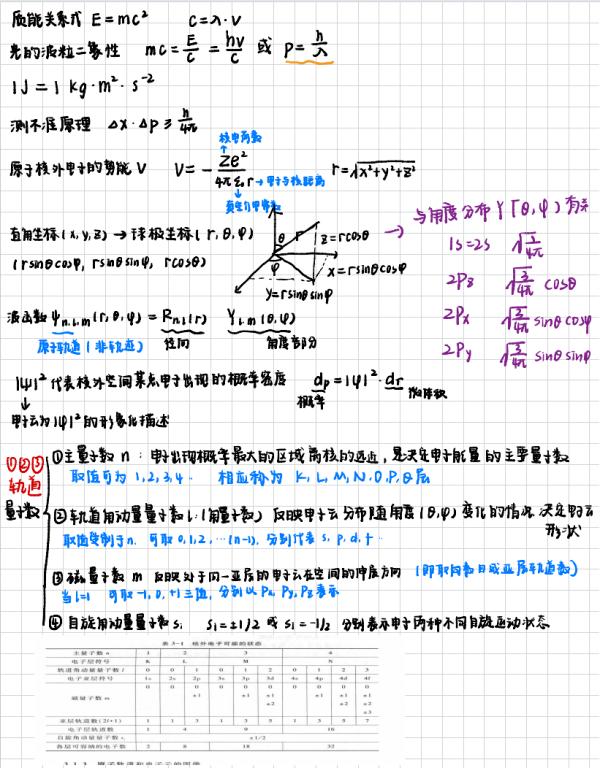 质能关系式 E=mc² c=λ·ν
光的波粒二象性 mc=E/c=hν/c 或 p=h/λ
1J=1 kg·m²·s⁻²
测不准原理 Δx·Δp≥h/4π
核电荷数
原子核外电子的势能V V=-Ze²/4πε₀r →电子与核距离 r=√x²+y²+z²
真空介电常数
直角坐标(x,y,z)→球极坐标(r,θ,φ)
(rsinθcosφ, rsinθsinφ, rcosθ)
θ r z=rcosθ
φ x=rsinθcosφ
y=rsinθsinφ
→与角度分布Y(θ,φ)有关
1s=2s √1/4π
2Pz √3/4π cosθ
2Px √3/4π sinθcosφ
2Py √3/4π sinθsinφ
波函数 ψn,l,m(r,θ,φ)=Rn,l(r) Yl,m(θ,φ)
原子轨道(非轨迹) 径向 角度部分
|ψ|²代表核外空间某点电子出现的概率密度 dp=|ψ|²·dτ 微体积
概率
↓
电子云为|ψ|²的形象化描述
①②③
轨道
量子数
①主量子数 n：电子出现概率最大的区域离核的远近，是决定电子能量的主要量子数
取值可为 1,2,3,4… 相应称为 K,L,M,N,O,P,Q层
②轨道角动量量子数 l：(角量子数) 反映电子云分布随角度(θ,φ)变化的情况 决定电子云
形状
取值受制于n. 可取0,1,2,…(n-1), 分别代表 s, p, d, f…
③磁量子数 m 反映处于同一亚层的电子云在空间的伸展方向 (即取向数目或亚层轨道数)
当l=1 可取-1,0,+1三值，分别以Px,Py,Pz表示
④自旋角动量量子数si si=+1/2 或 si=-1/2 分别表示电子两种不同自旋运动状态
表 3-1 核外电子可能的状态
主量子数 n 1 2 3 4
电子层符号 K L M N
轨道角动量量子数 l 0 0 1 0 1 2 0 1 2 3
电子亚层符号 1s 2s 2p 3s 3p 3d 4s 4p 4d 4f
0 0 0 0 0 0 0 0 0 0
磁量子数 m ±1 ±1 ±1 ±1 ±1 ±1
±2 ±2 ±2
±3
亚层轨道数(2l+1) 1 1 3 1 3 5 1 3 5 7
电子层轨道数 1 4 9 16
自旋角动量量子数 si ±1/2
各层可容纳的电子数 2 8 18 32